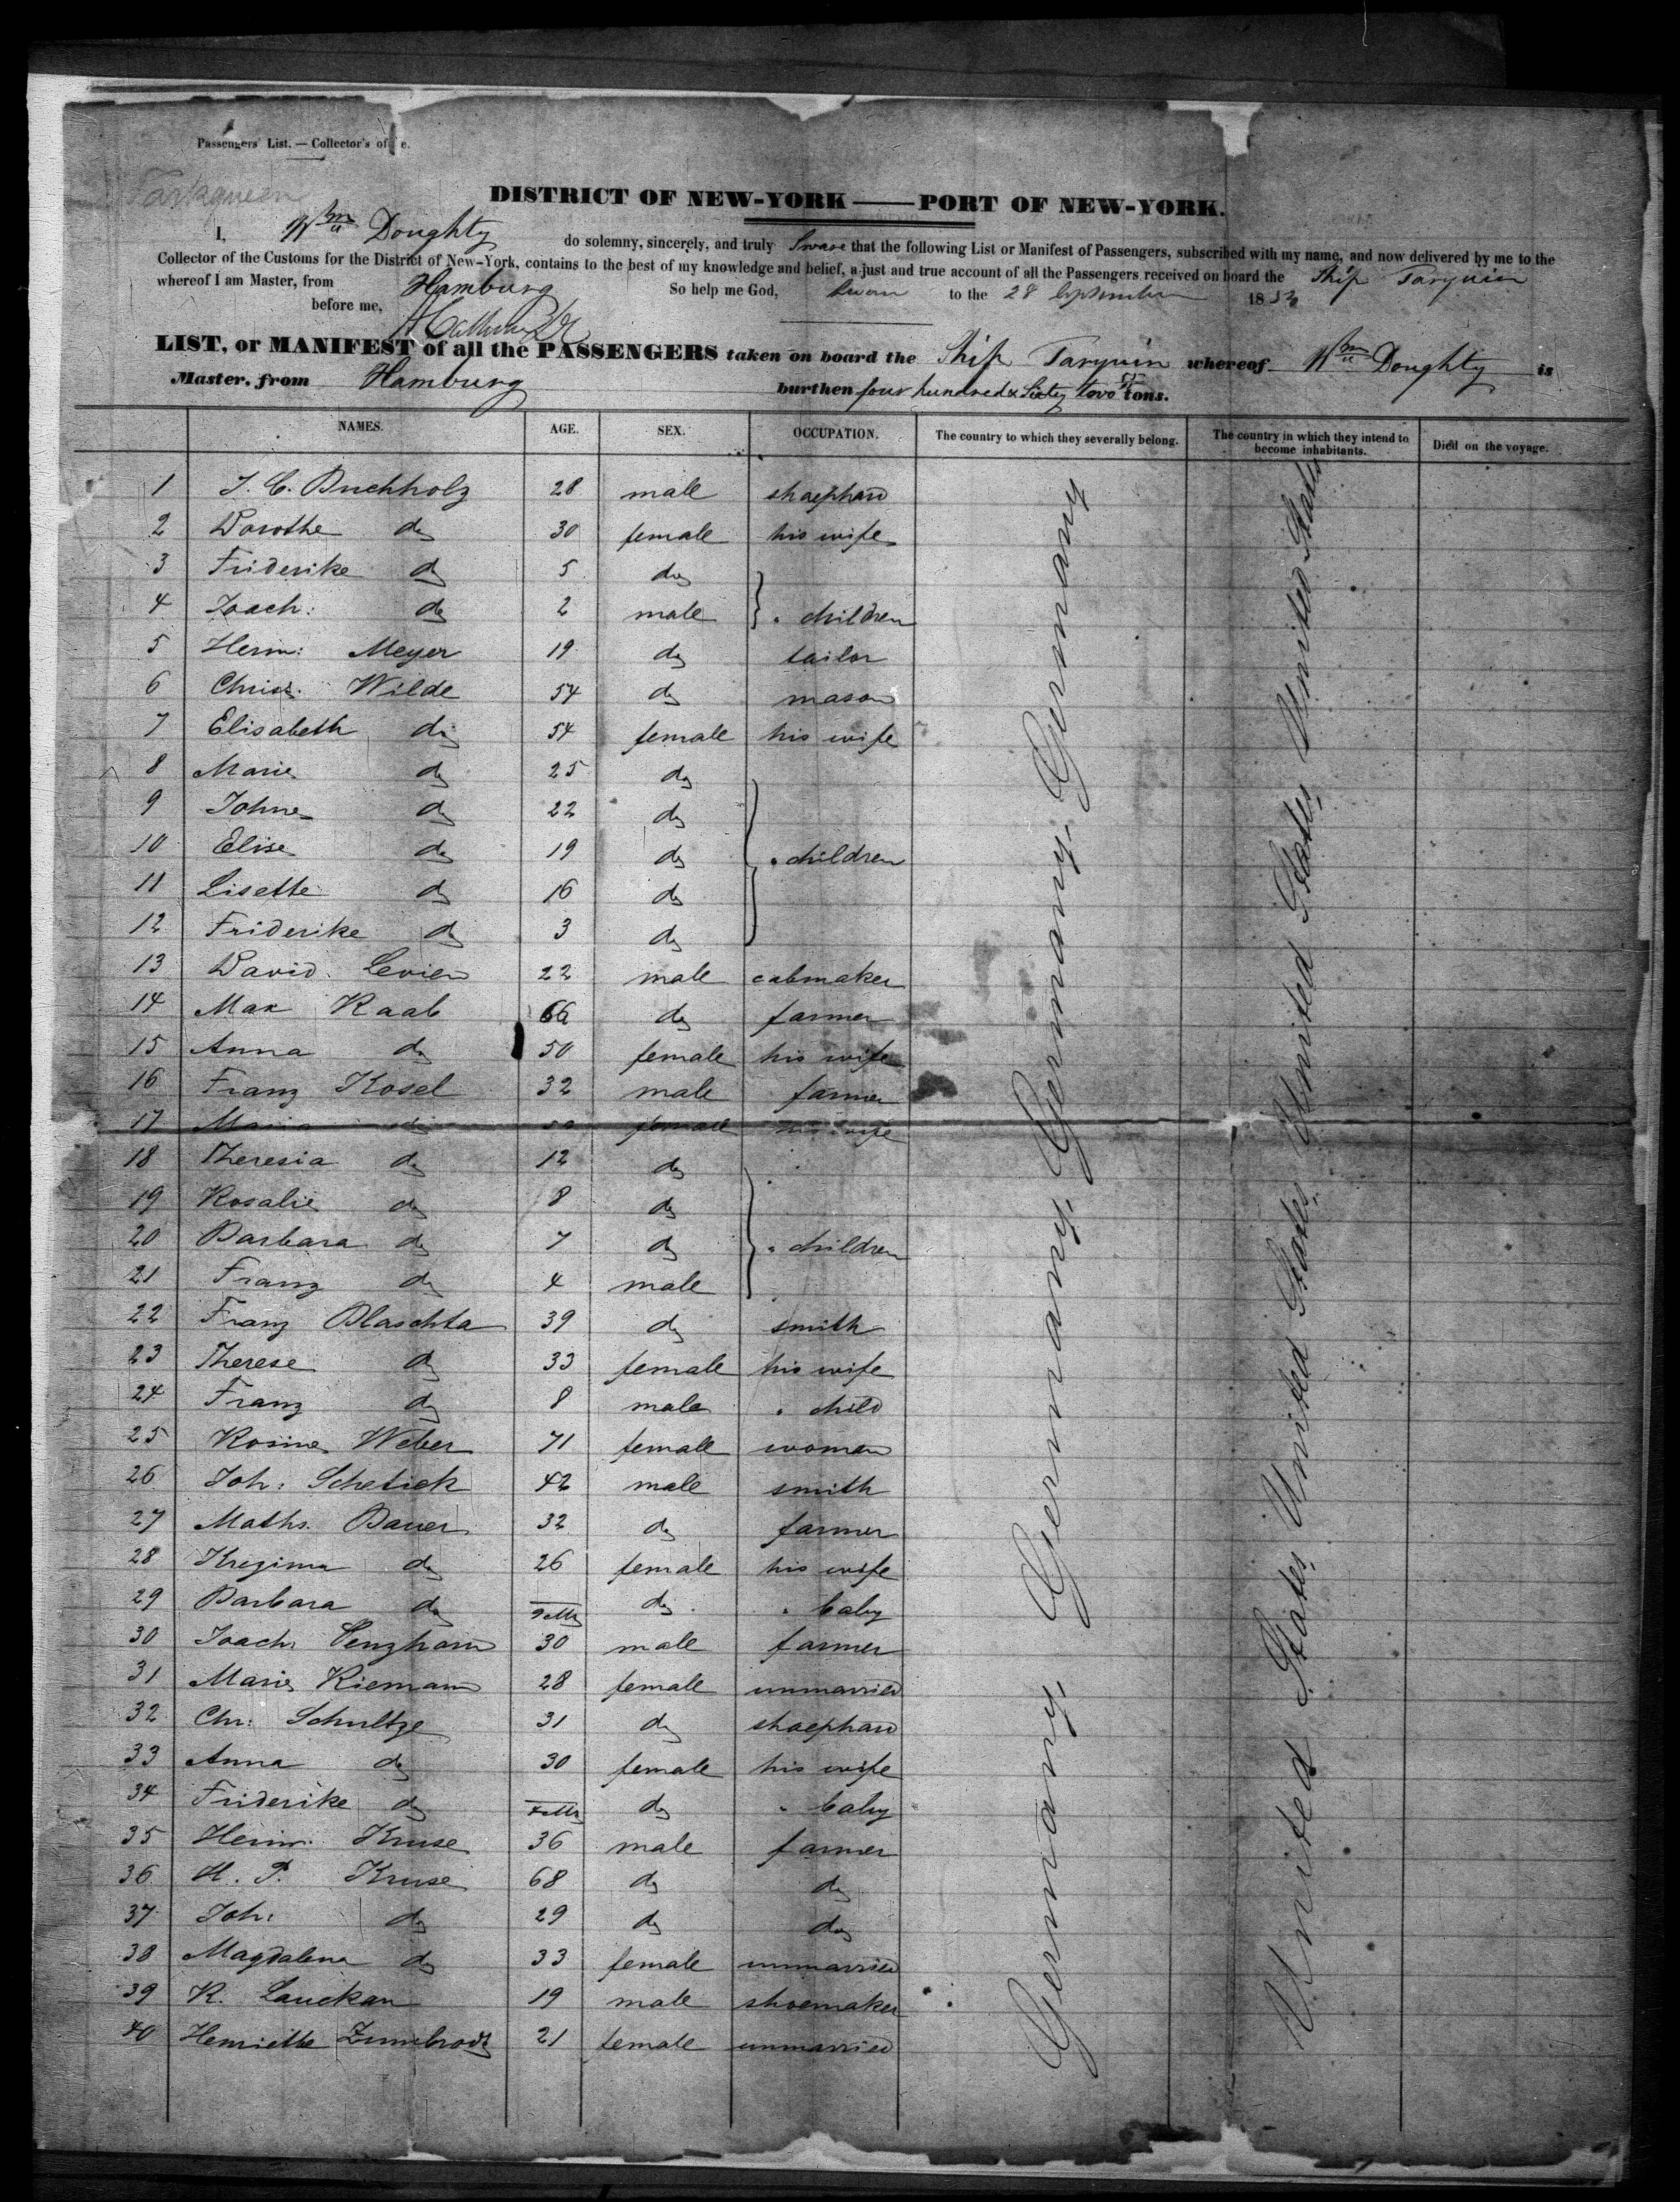 Passengers' List. — Collector's of e.
Tarkqueen
DISTRICT OF NEW-YORK —— PORT OF NEW-YORK.
I, Wm Doughty do solemny, sincerely, and truly Swear that the following List or Manifest of Passengers, subscribed with my name, and now delivered by me to the
Collector of the Customs for the District of New-York, contains to the best of my knowledge and belief, a just and true account of all the Passengers received on board the Ship Tarquin
whereof I am Master, from Hamburg So help me God, Sworn to the 28 September 185
before me,
LIST, or MANIFEST of all the PASSENGERS taken on board the Ship Tarquin whereof Wm Doughty is
Master, from Hamburg burthen four hundred & Sixty two tons.
NAMES. AGE. SEX. OCCUPATION. The country to which they severally belong. The country in which they intend to become inhabitants. Died on the voyage.
1 J. C. Buchholz 28 male shaephard
2 Dorothe do 30 female his wife
3 Friderike do 5 do
4 Joach: do 2 male " children
5 Herm: Meyer 19 do tailor
6 Christ. Wilde 54 do mason
7 Elisabeth do 54 female his wife
8 Marie do 25 do
9 Johne do 22 do
10 Elise do 19 do " children
11 Lisette do 16 do
12 Friderike do 3 do
13 David Levien 22 male cabmaker
14 Max Raab 66 do farmer
15 Anna do 50 female his wife
16 Franz Kosel 32 male farmer
17 Maria do female his wife
18 Theresia do 12 do
19 Rosalie do 8 do
20 Barbara do 7 do " children
21 Franz do 4 male
22 Franz Blaschta 39 do smith
23 Therese do 33 female his wife
24 Franz do 8 male " child
25 Rosine Weber 71 female woman
26 Joh: Schetick 42 male smith
27 Maths. Bauer 32 do farmer
28 Kregina do 26 female his wife
29 Barbara do 9 Mts do " baby
30 Joach: 30 male farmer
31 Marie Riemann 28 female unmarried
32 Chr: Schultze 31 do shaephard
33 Anna do 30 female his wife
34 Friderike do Mts do " baby
35 Heinr: Kruse 36 male farmer
36 H. P. Kruse 68 do do
37 Joh: do 29 do do
38 Magdalena do 33 female unmarried
39 K. Lauckau 19 male shoemaker
40 Henriette Zumbrodt 21 female unmarried
Germany, Germany, Germany, Germany, Germany
United States, United States, United States, United States, United States